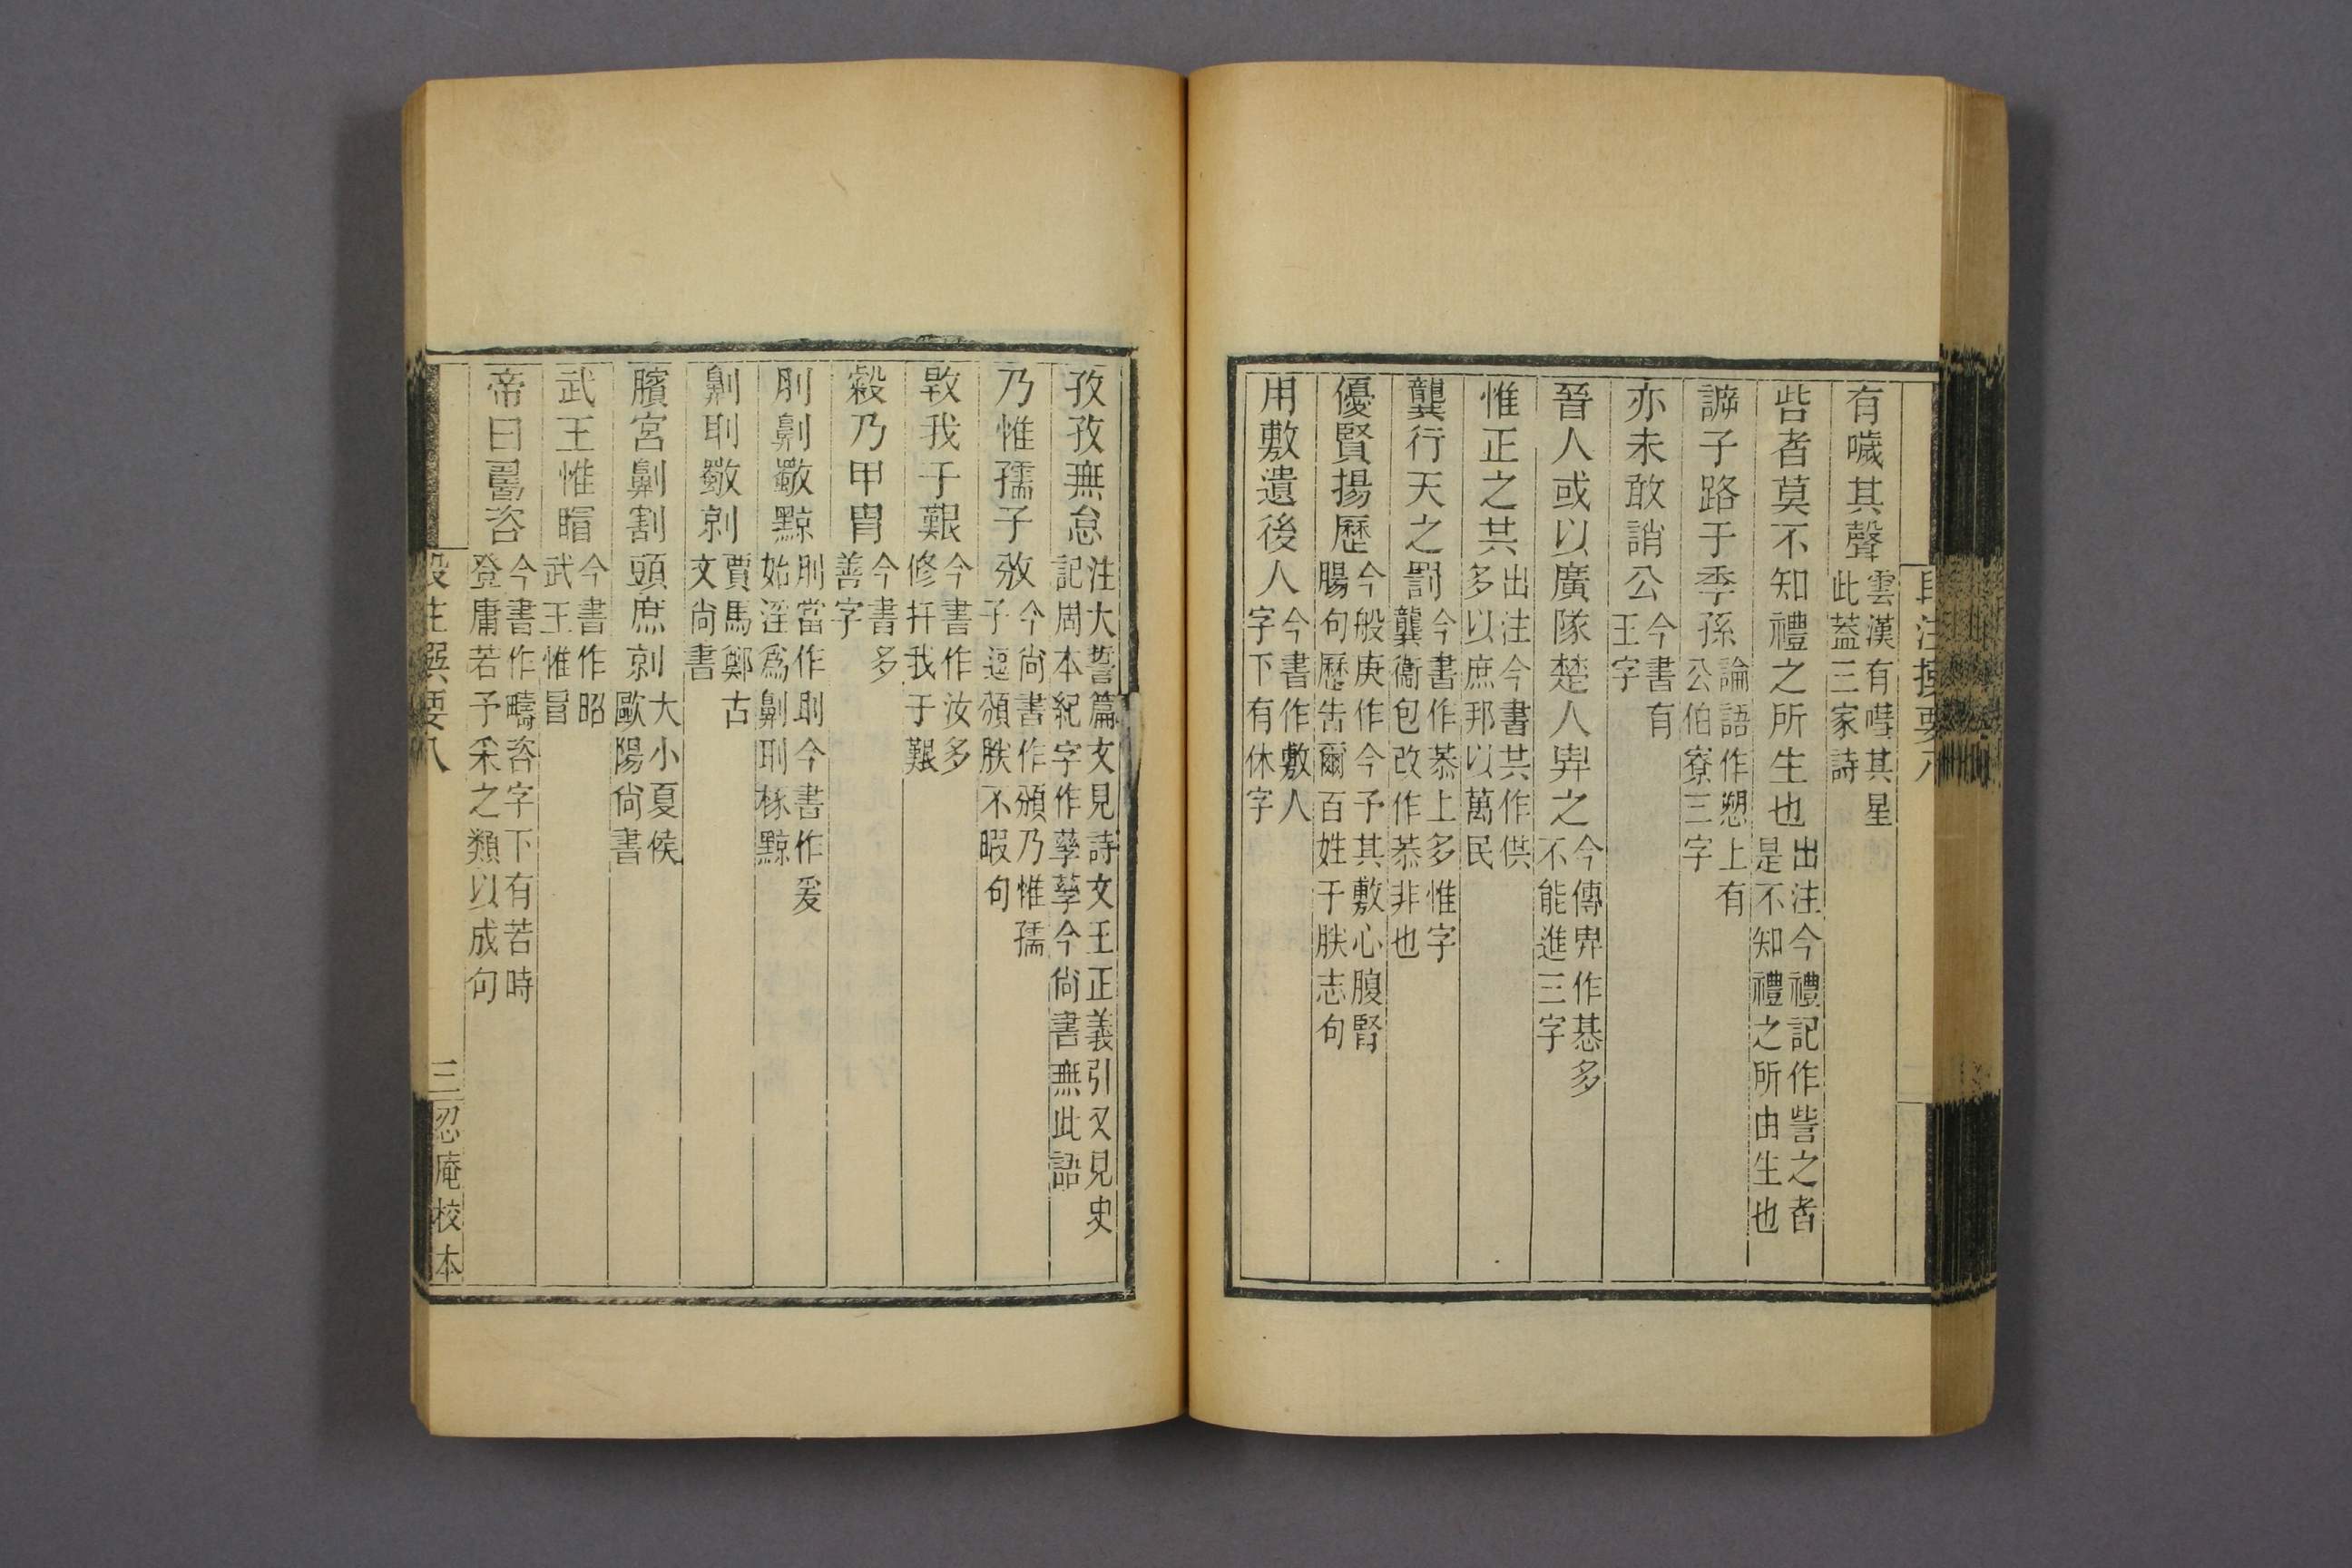 有噦其聲
雲漢有嘒其星
此蓋三家詩
呰者莫不知禮之所生也
出注今禮記作訾之者
是不知禮之所由生也
子路于季孫
論語作愬上有
公伯寮三字
亦未敢誚公
今書有
王字
晉人或以廣隊楚人𢍁之
今傳𢍁作惎多
不能進三字
惟正之共
出注今書共作供
多以庶邦以萬民
龔行天之罰
今書作恭上多惟字
龔衞包改作恭非也
優賢揚歷
今般庚作今予其敷心腹腎
腸句歷告爾百姓于朕志句
用敷遺後人
今書作敷人
字下有休字
孜孜無怠
注大誓篇文見詩文王正義引又見史
記周本紀字作孳孳今尚書無此語
乃惟孺子攽
今尚書作頒乃惟孺
子逗頒朕不暇句
㪋我于艱
今書作汝多
修扞我于艱
敹乃甲冑
今書多
善字
刖劓斀黥
刖當作刵今書作爰
始淫爲劓刵椓黥
劓刵斀剠
賈馬鄭古
文尚書
臏宮劓割頭庶剠
大小夏侯
歐陽尚書
武王惟䁋
今書作昭
武王惟冒
帝曰𠷎咨
今書作疇咨字下有若時
登庸若予采之類以成句
段注撰要八
三
忍庵校本